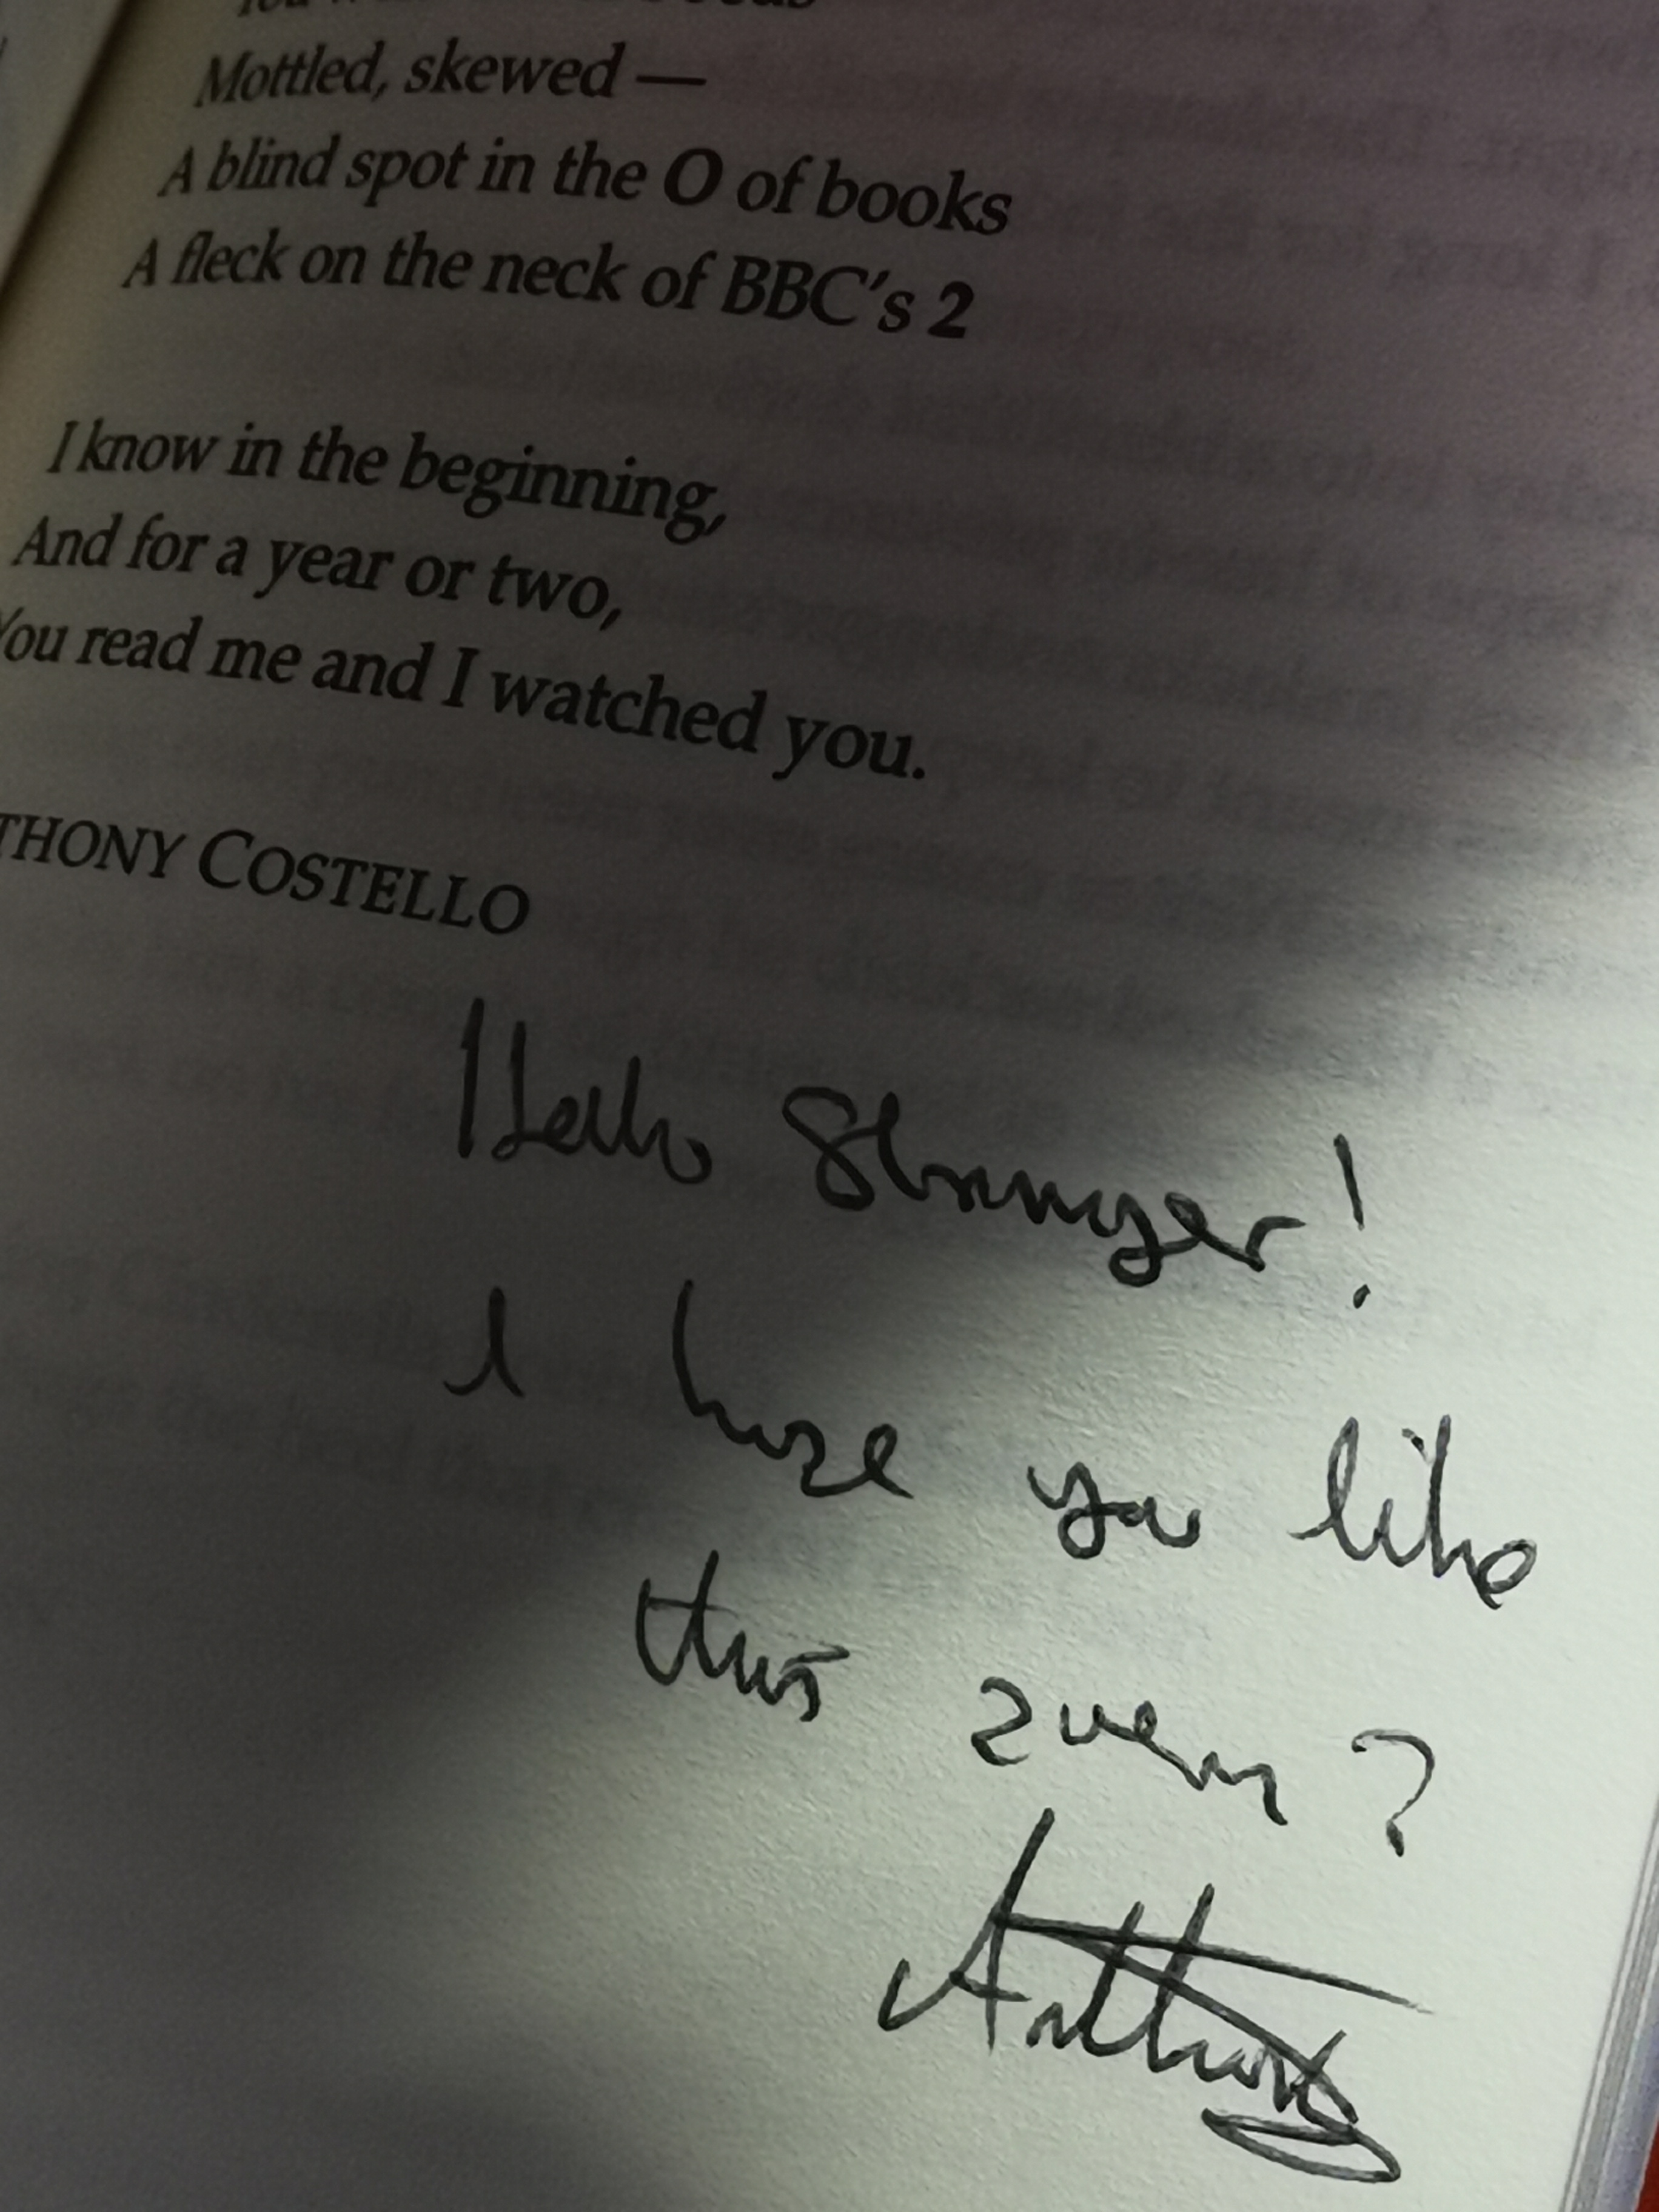 Mottled, skewed —
A blind spot in the O of books
A fleck on the neck of BBC's 2
I know in the beginning,
And for a year or two,
You read me and I watched you.
THONY COSTELLO
Hello Stranger!
I hope you like
this poem?
Anthony